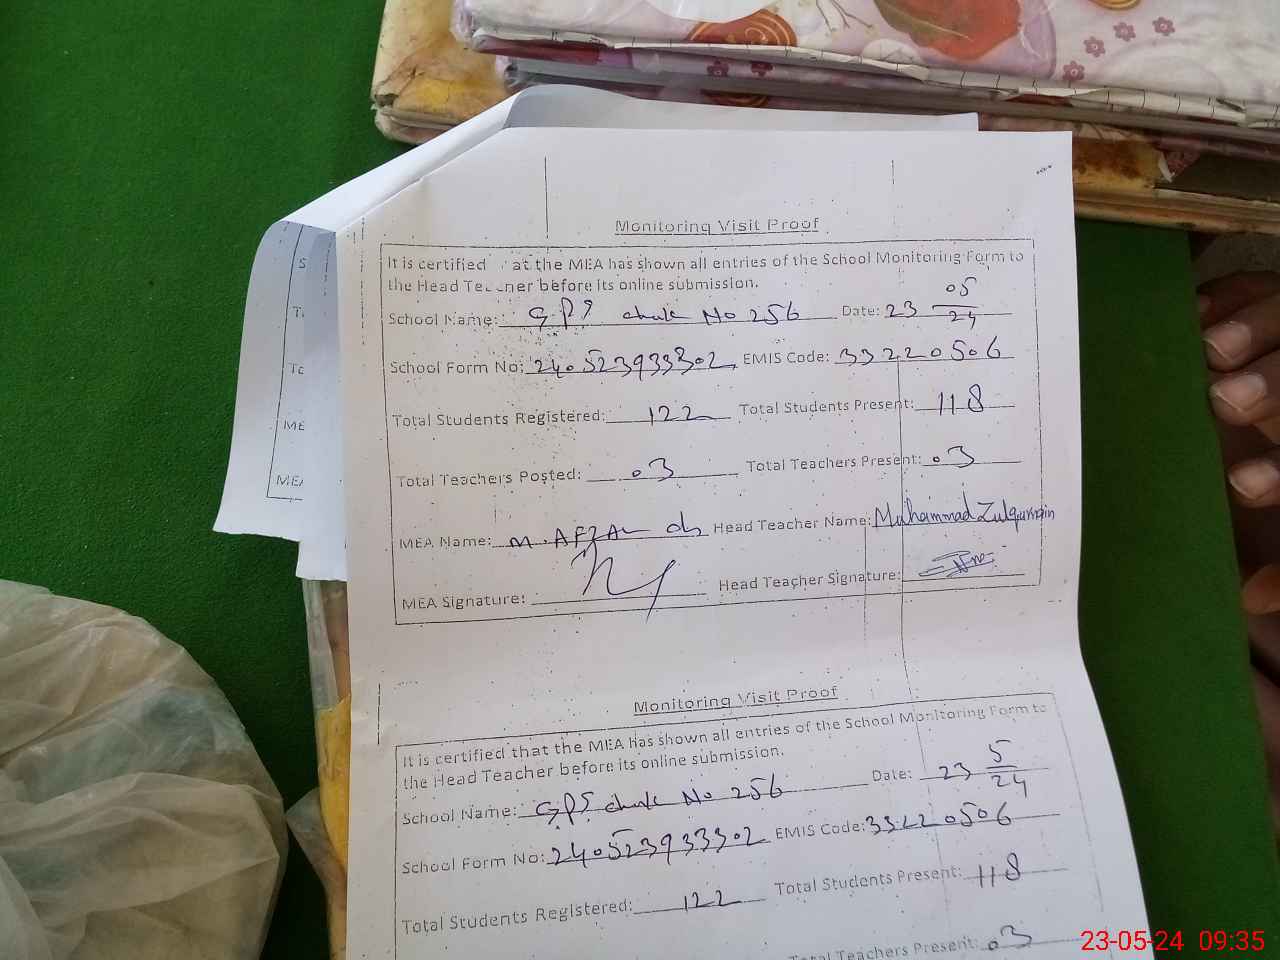 Monitoring Visit Proof
It is certified at the MEA has shown all entries of the School Monitoring Form to
the Head Teacher before its online submission.
School Name: GPS chak No 256 Date: 23 05/24
School Form No: 240523933302 EMIS Code: 33220506
Total Students Registered: 122 Total Students Present: 118
Total Teachers Posted: 03 Total Teachers Present: 03
MEA Name: M. AFZAL Head Teacher Name: Muhammad Zulqurnain
MEA Signature: Head Teacher Signature:
S
T
To
ME
ME
Monitoring Visit Proof
It is certified that the MEA has shown all entries of the School Monitoring Form to
the Head Teacher before its online submission.
School Name: GPS chak No 256 Date: 23 5/24
School Form No: 240523933302 EMIS Code: 33220506
Total Students Registered: 122 Total Students Present: 118
Total Teachers Present: 03
23-05-24 09:35